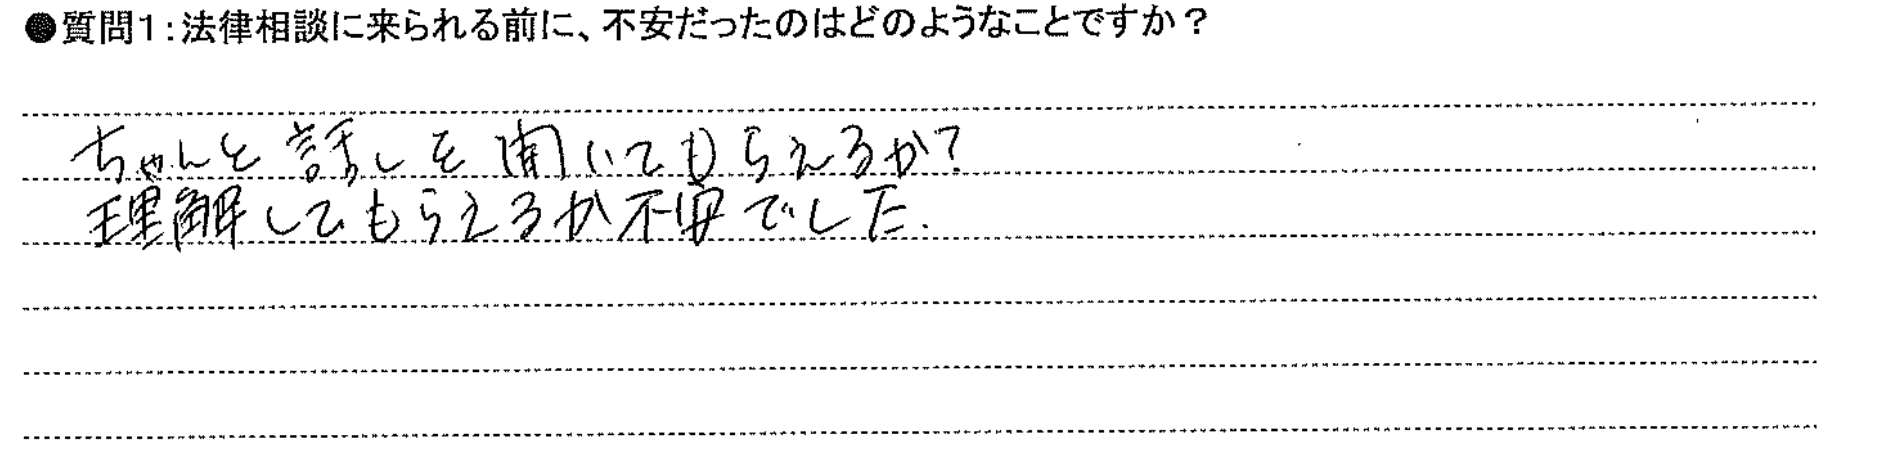 ●質問1:法律相談に来られる前に、不安だったのはどのようなことですか?
ちゃんと話しを聞いてもらえるか?
理解してもらえるか不安でした.